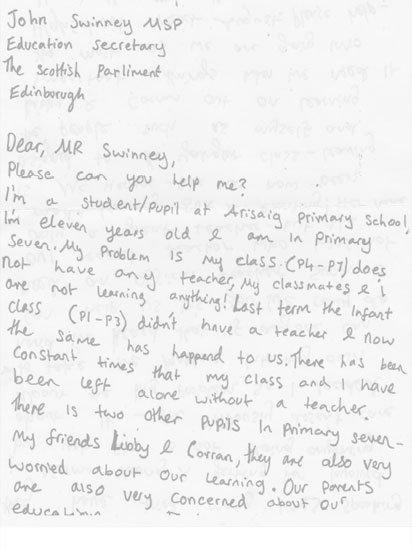 John Swinney MSP
Education secretary
The Scottish Parliment
Edinborough
Dear, MR Swinney,
Please can you help me?
I'm a student/pupil at Arisaig Primary School,
I'm eleven years old & am in Primary
Seven. My Problem is my class (P4-P7) does
not have any teacher, My classmates & I
are not learning anything! Last term the Infant
class (P1-P3) didn't have a teacher & now
the same has happend to us. There has been
constant times that my class and I have
been left alone without a teacher.
There is two other pupils in Primary seven-
My friends Libby & Corran, they are also very
worried about our learning. Our parents
are also very concerned about our
education